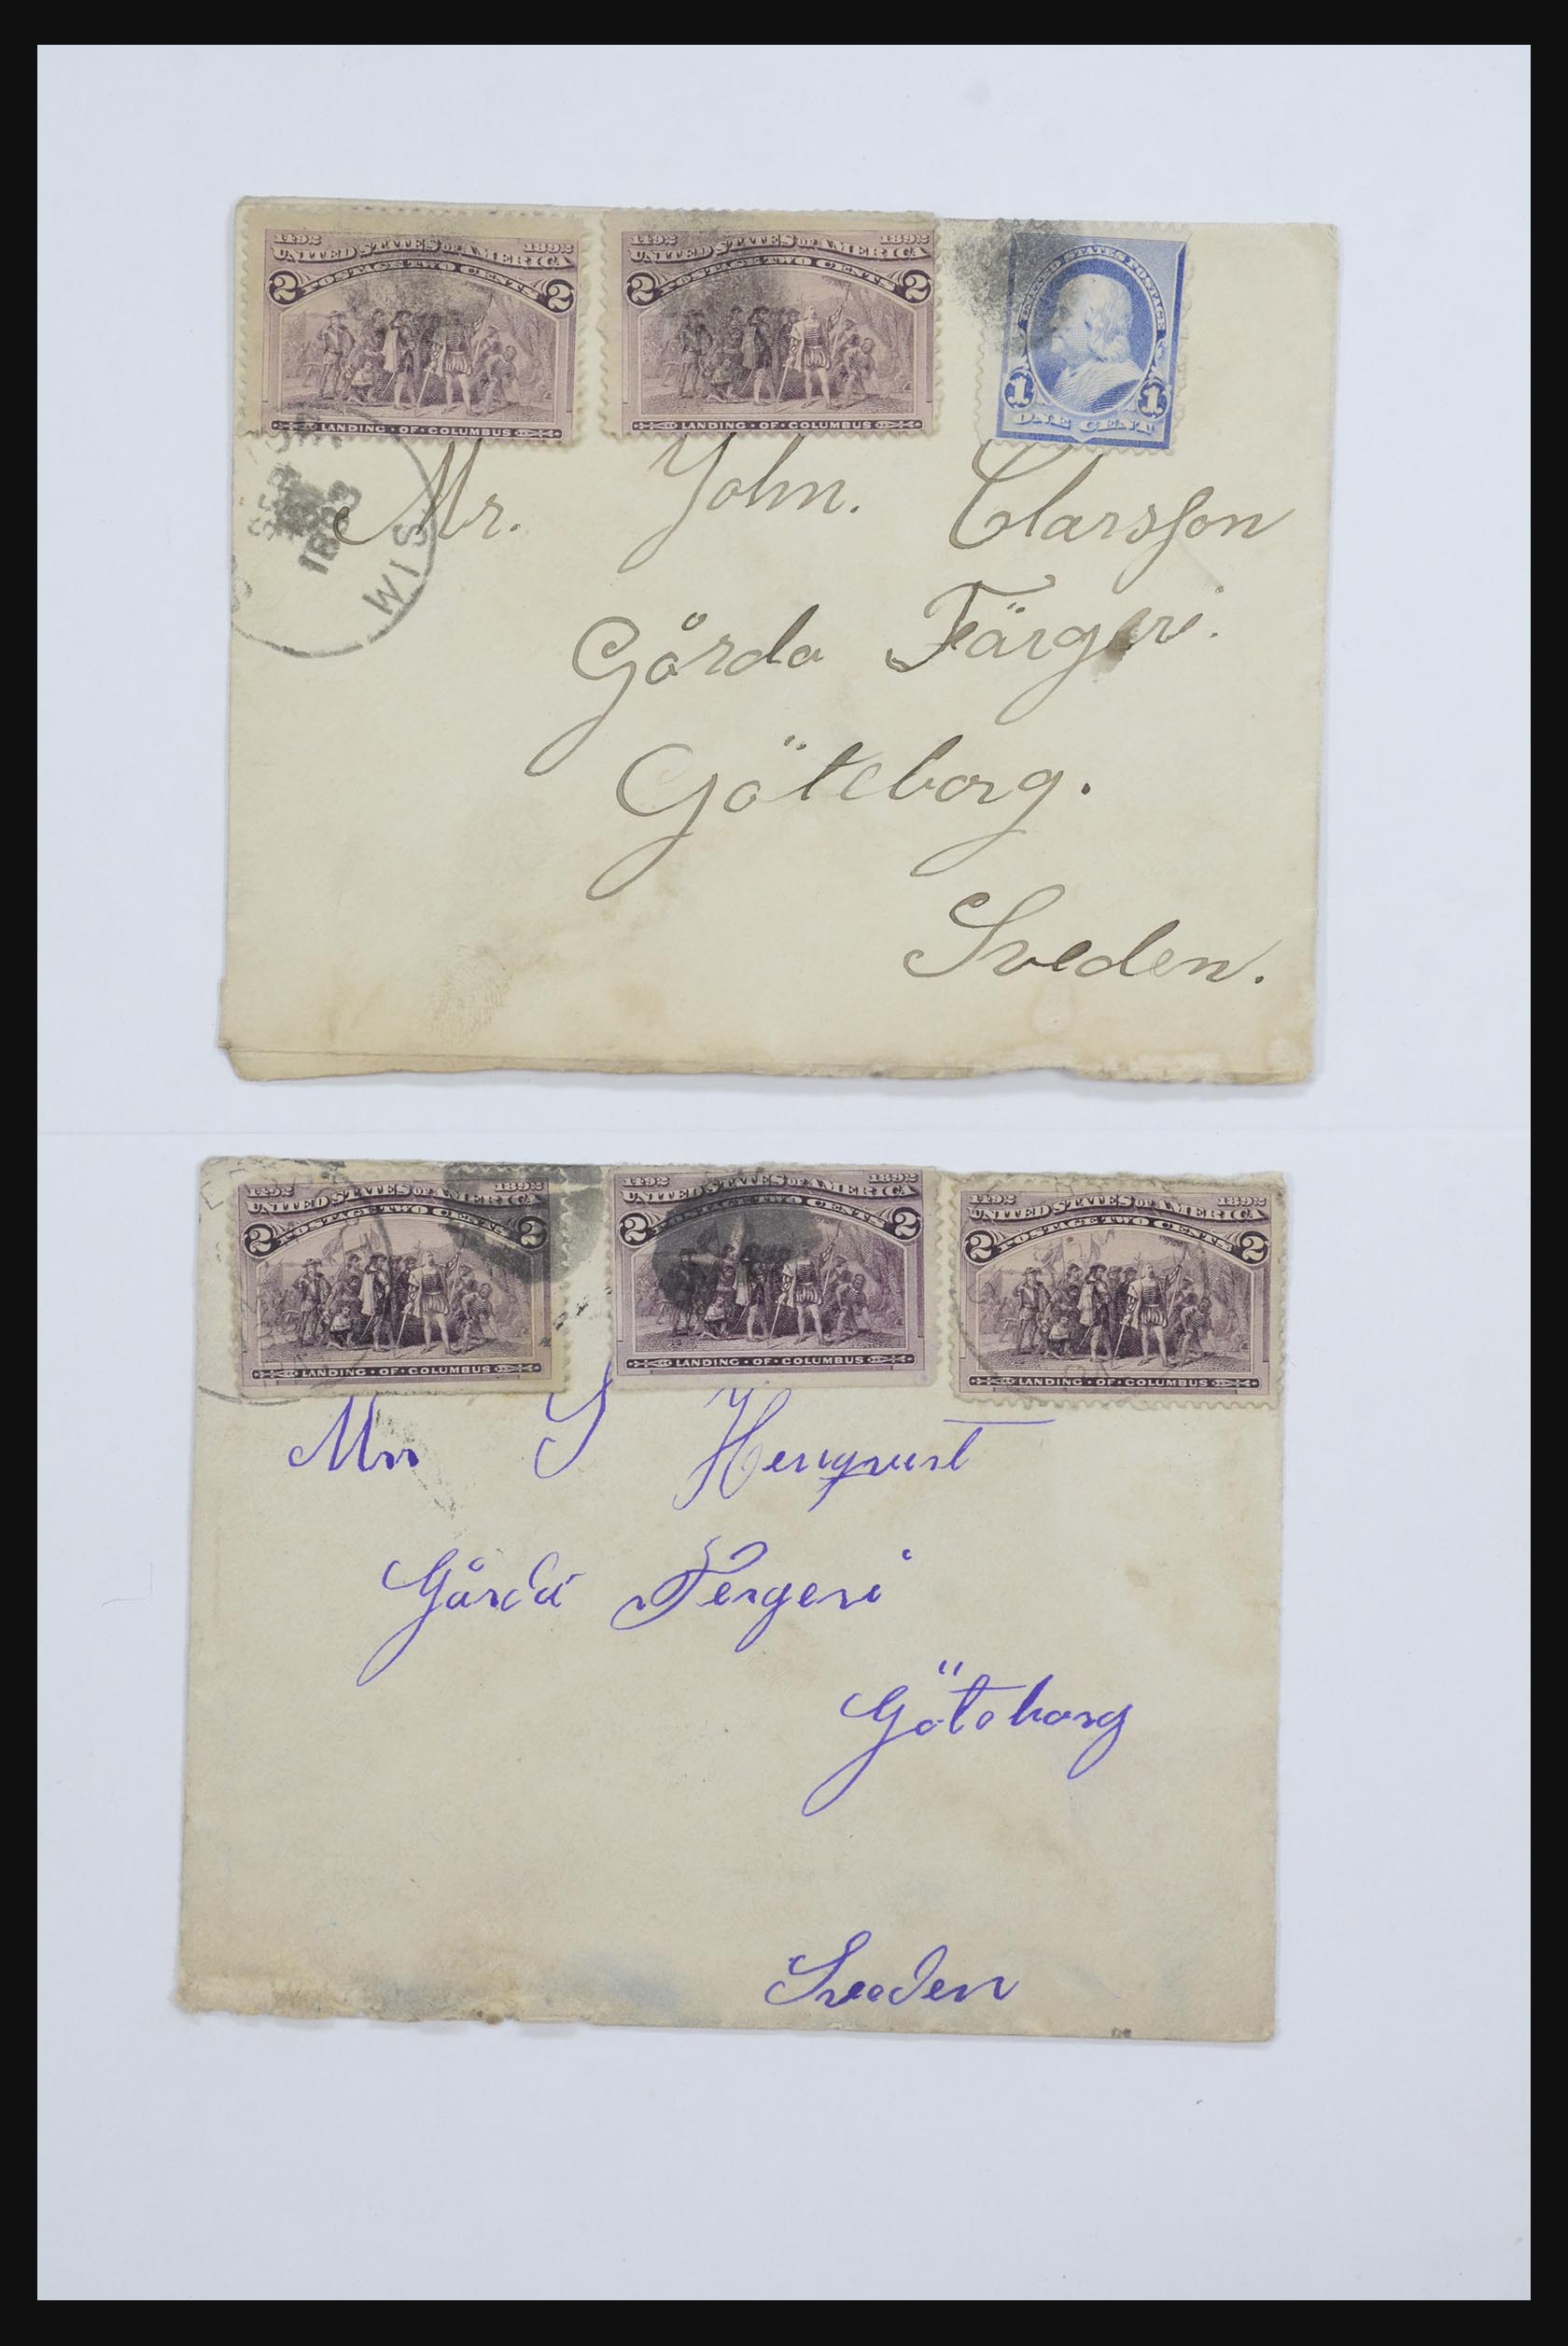 1492 1892
UNITED STATES OF AMERICA
POSTAGE TWO CENTS
2 2
LANDING · OF · COLUMBUS
1492 1892
UNITED STATES OF AMERICA
POSTAGE TWO CENTS
2 2
LANDING · OF · COLUMBUS
UNITED STATES POSTAGE
1 1
ONE CENT
1893
WIS
Mr. John. Clarsson
Gårda Färgeri.
Göteborg.
Sveden.
1492 1892
UNITED STATES OF AMERICA
POSTAGE TWO CENTS
2 2
LANDING · OF · COLUMBUS
1492 1892
UNITED STATES OF AMERICA
POSTAGE TWO CENTS
2 2
LANDING · OF · COLUMBUS
1492 1892
UNITED STATES OF AMERICA
POSTAGE TWO CENTS
2 2
LANDING · OF · COLUMBUS
S
Gårda Fergeri
Göteborg
Sveden